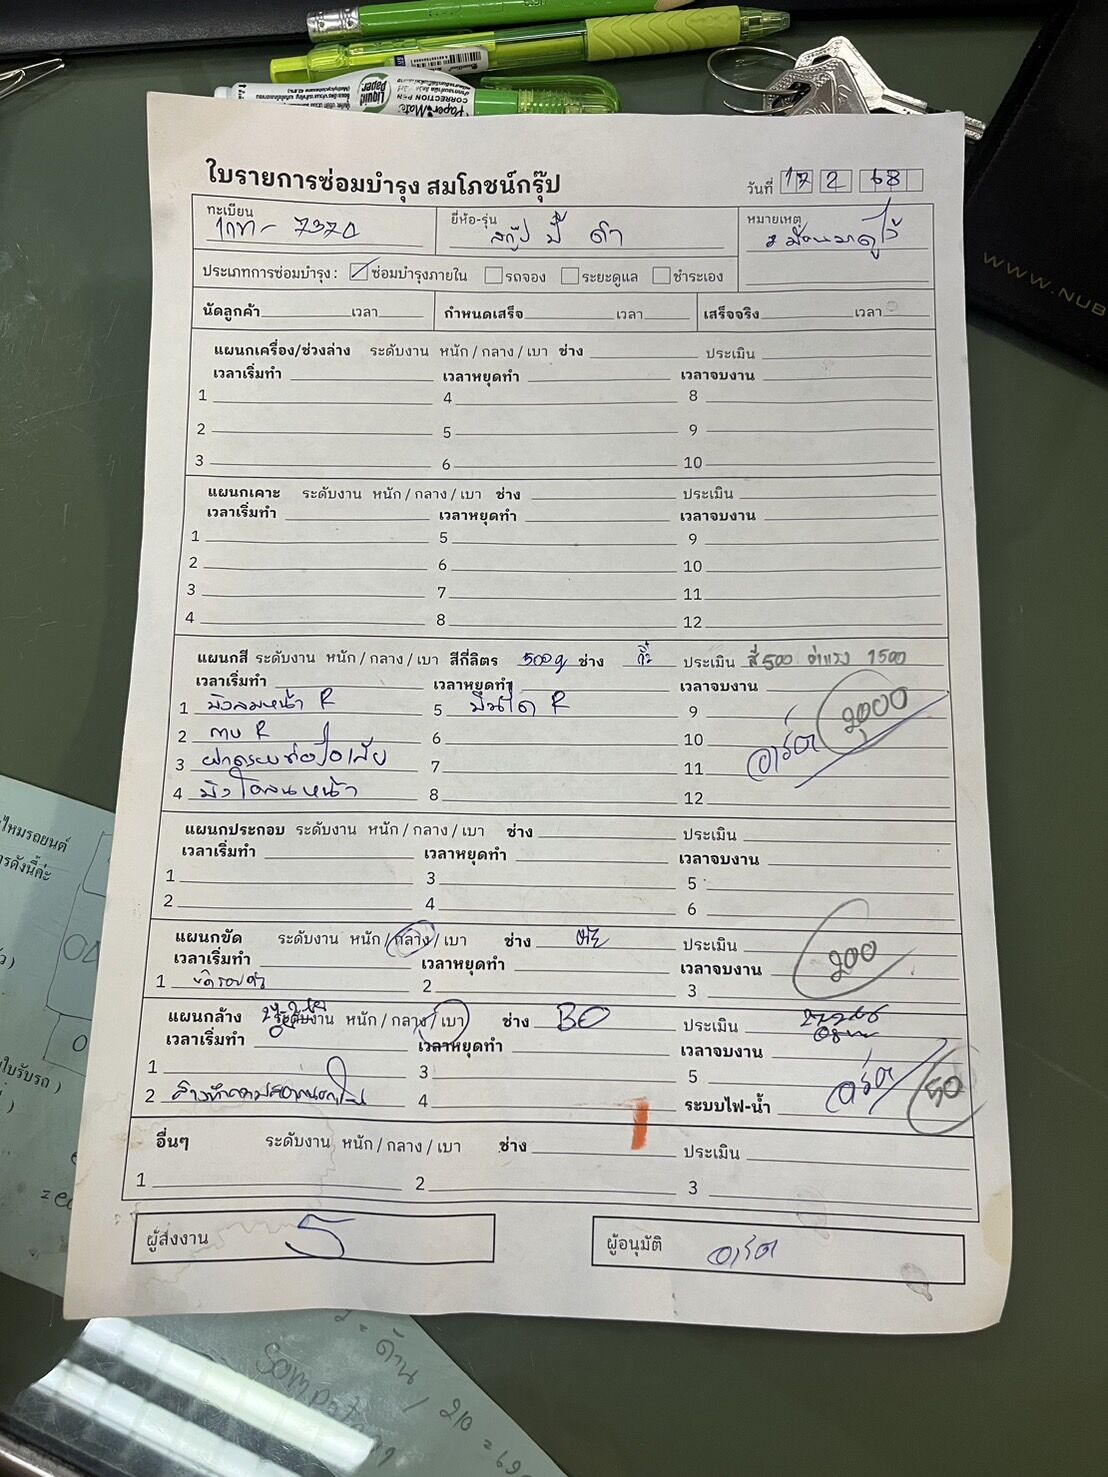 ใบรายการซ่อมบำรุง สมโภชน์กรุ๊ป
วันที่ 17 2 68
ทะเบียน 1กท - 7370
ยี่ห้อ-รุ่น สกู๊ปปี้ ดำ
หมายเหตุ
ประเภทการซ่อมบำรุง : ซ่อมบำรุงภายใน รถจอง ระยะดูแล ชำระเอง
นัดลูกค้า เวลา กำหนดเสร็จ เวลา เสร็จจริง เวลา
แผนกเครื่อง/ช่วงล่าง ระดับงาน หนัก / กลาง / เบา ช่าง ประเมิน
เวลาเริ่มทำ เวลาหยุดทำ เวลาจบงาน
1 4 8
2 5 9
3 6 10
แผนกเคาะ ระดับงาน หนัก / กลาง / เบา ช่าง ประเมิน
เวลาเริ่มทำ เวลาหยุดทำ เวลาจบงาน
1 5 9
2 6 10
3 7 11
4 8 12
แผนกสี ระดับงาน หนัก / กลาง / เบา สีกี่ลิตร 500g ช่าง ประเมิน สี 500 ค่าแรง 1500
เวลาเริ่มทำ เวลาหยุดทำ เวลาจบงาน
1 บังลมหน้า R 5 บันได R 9 2,000
2 กาบ R 6 10
3 ฝาครอบท่อไอเสีย 7 11 อาร์ต
4 บังโคลนหน้า 8 12
แผนกประกอบ ระดับงาน หนัก / กลาง / เบา ช่าง ประเมิน
เวลาเริ่มทำ เวลาหยุดทำ เวลาจบงาน
1 3 5
2 4 6
แผนกขัด ระดับงาน หนัก / กลาง / เบา ช่าง ประเมิน
เวลาเริ่มทำ เวลาหยุดทำ เวลาจบงาน 200
1 ขัดรอบคัน 2 3
แผนกล้าง ระดับงาน หนัก / กลาง / เบา ช่าง BO ประเมิน
เวลาเริ่มทำ เวลาหยุดทำ เวลาจบงาน
1 3 5 อาร์ต 50
2 4 ระบบไฟ-น้ำ
อื่นๆ ระดับงาน หนัก / กลาง / เบา ช่าง ประเมิน
1 2 3
ผู้ส่งงาน
ผู้อนุมัติ อาร์ต
WWW.NUB
Liquid Paper
CORRECTION PEN
Paper Mate
ไหมรถยนต์
ารดังนี้ค่ะ
ใบรับรถ )